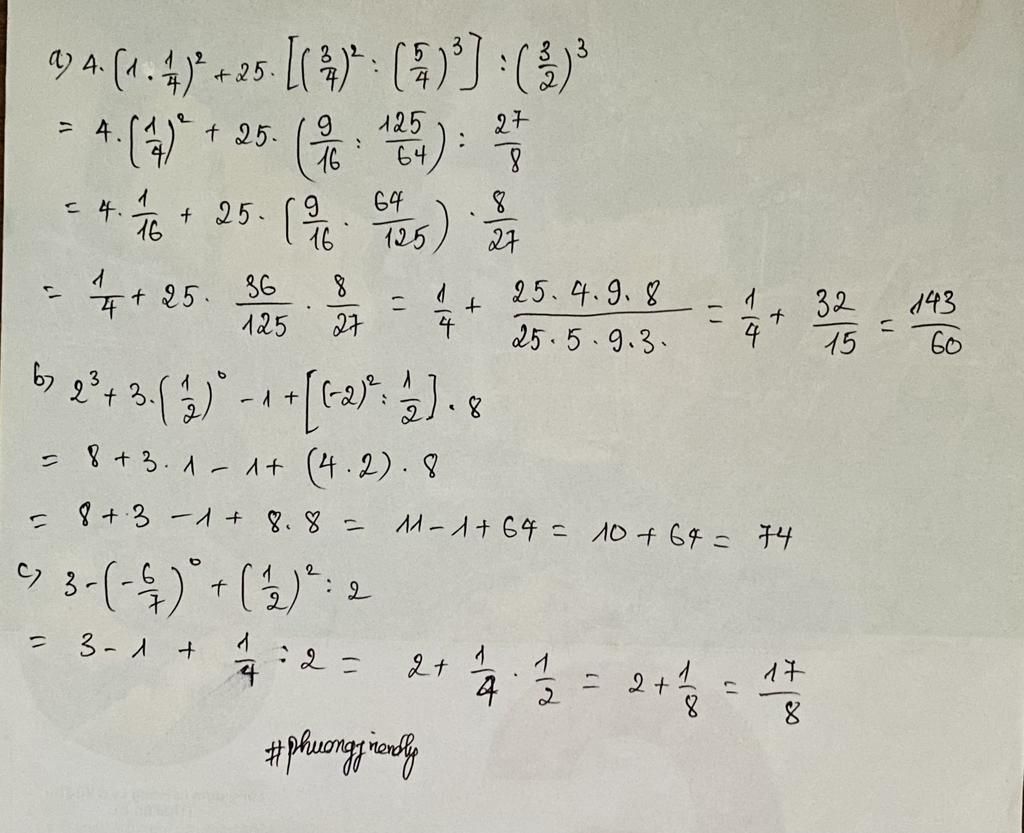 a) 4. (1 . 1/4)² + 25. [(3/4)² : (5/4)³] : (3/2)³
= 4. (1/4)² + 25. (9/16 : 125/64) : 27/8
= 4. 1/16 + 25. (9/16 . 64/125) . 8/27
= 1/4 + 25. 36/125 . 8/27 = 1/4 + 25.4.9.8/25.5.9.3. = 1/4 + 32/15 = 143/60
b) 2³ + 3. (1/2)⁰ - 1 + [(-2)² : 1/2] . 8
= 8 + 3. 1 - 1 + (4.2) . 8
= 8 + 3 - 1 + 8.8 = 11 - 1 + 64 = 10 + 64 = 74
c) 3 - (-6/7)⁰ + (1/2)² : 2
= 3 - 1 + 1/4 : 2 = 2 + 1/4 . 1/2 = 2 + 1/8 = 17/8
#phuongfriendly